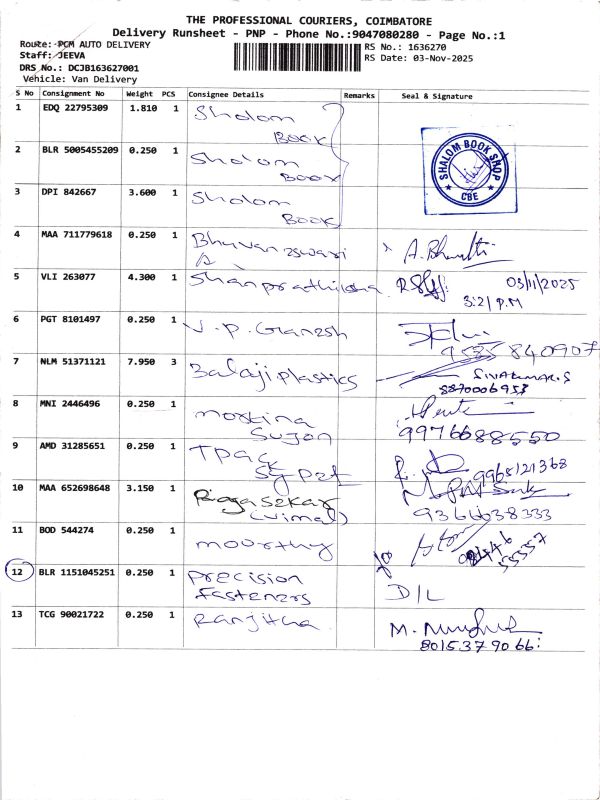 THE PROFESSIONAL COURIERS, COIMBATORE
Delivery Runsheet - PNP - Phone No.:9047080280 - Page No.:1
Route: PCM AUTO DELIVERY
Staff: JEEVA
DRS No.: DCJB163627001
Vehicle: Van Delivery
RS No.: 1636270
RS Date: 03-Nov-2025
S No Consignment No Weight PCS Consignee Details Remarks Seal & Signature
1 EDQ 22795309 1.810 1 Shalom
Book
2 BLR 5005455209 0.250 1 Shalom
Book
SHALOM BOOK SHOP
CBE
3 DPI 842667 3.600 1 Shalom
Book
4 MAA 711779618 0.250 1 Bhuvaneswari
A A. Bharathi
5 VLI 263077 4.300 1 Shanprathiksha 03/11/2025
3:21 P.M
6 PGT 8101497 0.250 1 V.P. Ganesh
7 NLM 51371121 7.950 3 Balaji plastics SIVAKUMAR.S
8870006953
8 MNI 2446496 0.250 1
Sujon 9976688550
9 AMD 31285651 0.250 1 TPack
9965121368
10 MAA 652698648 3.150 1 Rajasekar
(Vimal) 9366638333
11 BOD 544274 0.250 1 moorthy
12 BLR 1151045251 0.250 1 Precision
Fasteners D/L
13 TCG 90021722 0.250 1 Ranjitha
8015379066